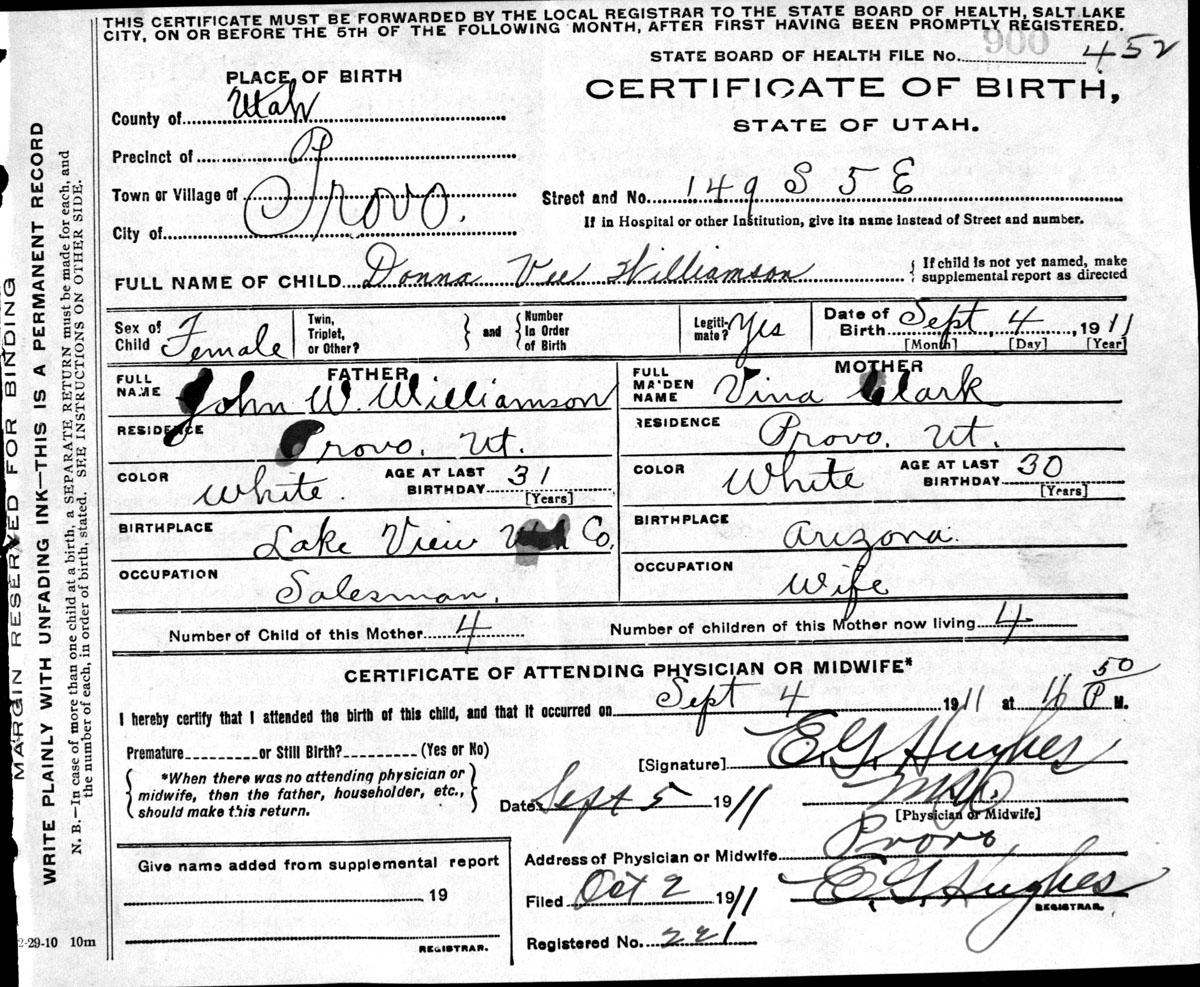 THIS CERTIFICATE MUST BE FORWARDED BY THE LOCAL REGISTRAR TO THE STATE BOARD OF HEALTH, SALT LAKE
CITY, ON OR BEFORE THE 5TH OF THE FOLLOWING MONTH, AFTER FIRST HAVING BEEN PROMPTLY REGISTERED.
900
STATE BOARD OF HEALTH FILE No. 452
PLACE OF BIRTH
CERTIFICATE OF BIRTH,
STATE OF UTAH.
County of Utah
Precinct of
Town or Village of
City of Provo.
Street and No. 149 S 5 E
If in Hospital or other Institution, give its name instead of Street and number.
FULL NAME OF CHILD Donna Vee Williamson
{ If child is not yet named, make
supplemental report as directed
Sex of Child Female
Twin, Triplet, or Other? } and { Number In Order of Birth
Legitimate? Yes
Date of Birth Sept. 4, 1911
[Month] [Day] [Year]
FATHER
FULL NAME John W. Williamson
RESIDENCE Provo. Ut.
COLOR White. AGE AT LAST BIRTHDAY 31 [Years]
BIRTHPLACE Lake View Co.
OCCUPATION Salesman.
MOTHER
FULL MAIDEN NAME Vina Clark
RESIDENCE Provo. Ut.
COLOR White AGE AT LAST BIRTHDAY 30 [Years]
BIRTHPLACE Arizona.
OCCUPATION Wife
Number of Child of this Mother 4
Number of children of this Mother now living 4
CERTIFICATE OF ATTENDING PHYSICIAN OR MIDWIFE*
I hereby certify that I attended the birth of this child, and that it occurred on Sept 4 1911 at 50 P M.
Premature or Still Birth? (Yes or No)
{ *When there was no attending physician or
midwife, then the father, householder, etc.,
should make this return. }
[Signature] E. G. Hughes
Date Sept 5 1911
[Physician or Midwife]
Address of Physician or Midwife Provo
Filed Oct 2 1911 E. G. Hughes
REGISTRAR.
Registered No. 221
Give name added from supplemental report
19
REGISTRAR.
MARGIN RESERVED FOR BINDING
WRITE PLAINLY WITH UNFADING INK—THIS IS A PERMANENT RECORD
N. B.—In case of more than one child at a birth, a SEPARATE RETURN must be made for each, and
the number of each, in order of birth, stated. SEE INSTRUCTIONS ON OTHER SIDE.
2-29-10 10m